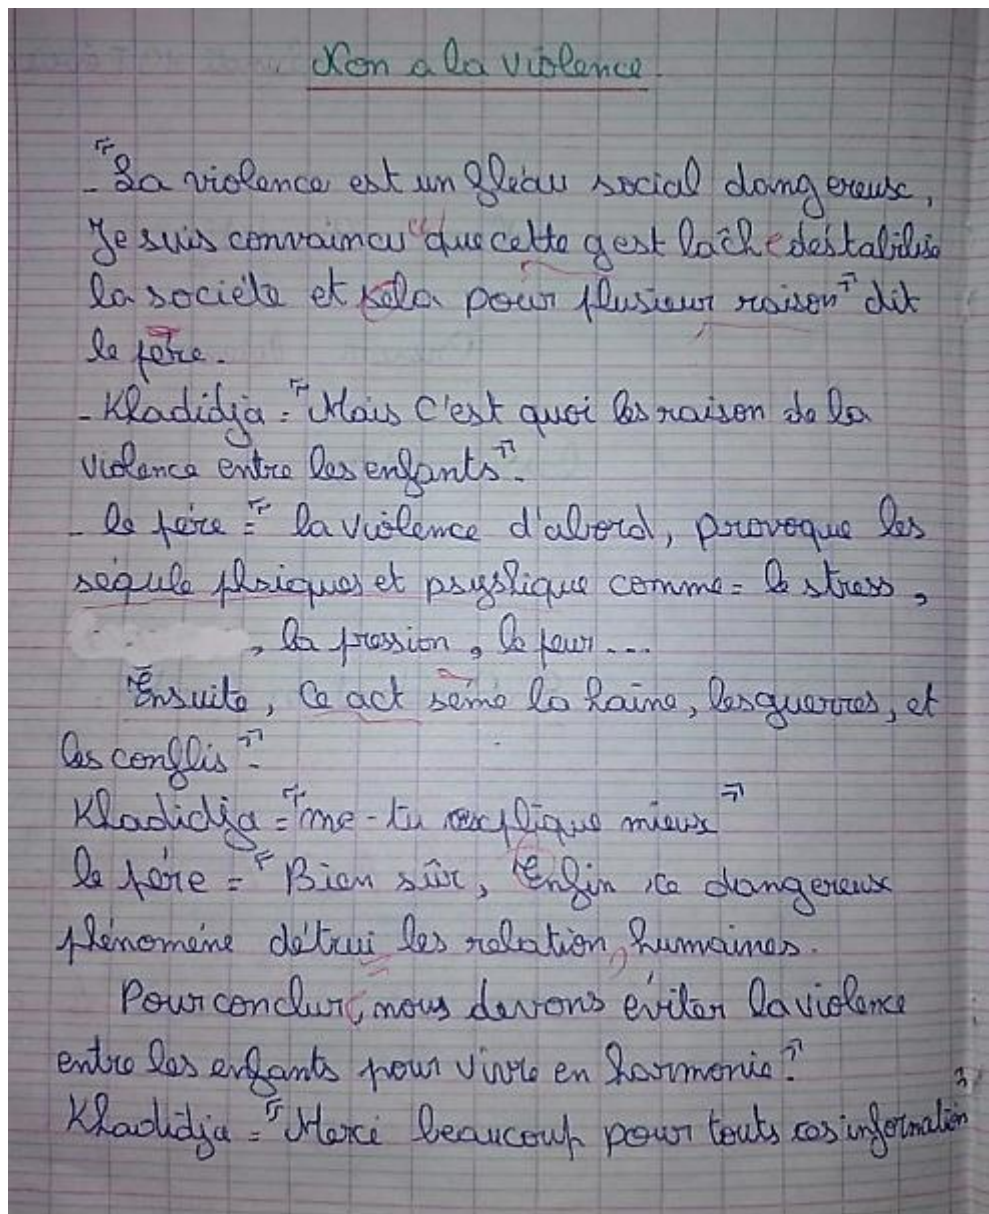 Non a la violence
"La violence est un fleàu social dangereuse,
Je suis convaincu que cette gest lâche déstabilise
la socièle et kela pour plusieur raison" dit
le père.
- Khadidja = "Mais C'est quoi les raison de la
violence entre les enfants".
- le père = "la violence d'abord, provoque les
séqule phsiques et psyshique comme = le stress,
, la pression, le peur...
Ensuite, Ce act sème la haine, les guerres, et
les conflis".
Khadidja = "me-tu explique mieux"
le père = "Bien sûr, Enfin, ce dangereux
phénomène détrui les relation humaines.
Pour conclur, nous devons éviter la violence
entre les enfants pour vivre en harmonie".
Khadidja = "Merci beaucoup pour touts ces information